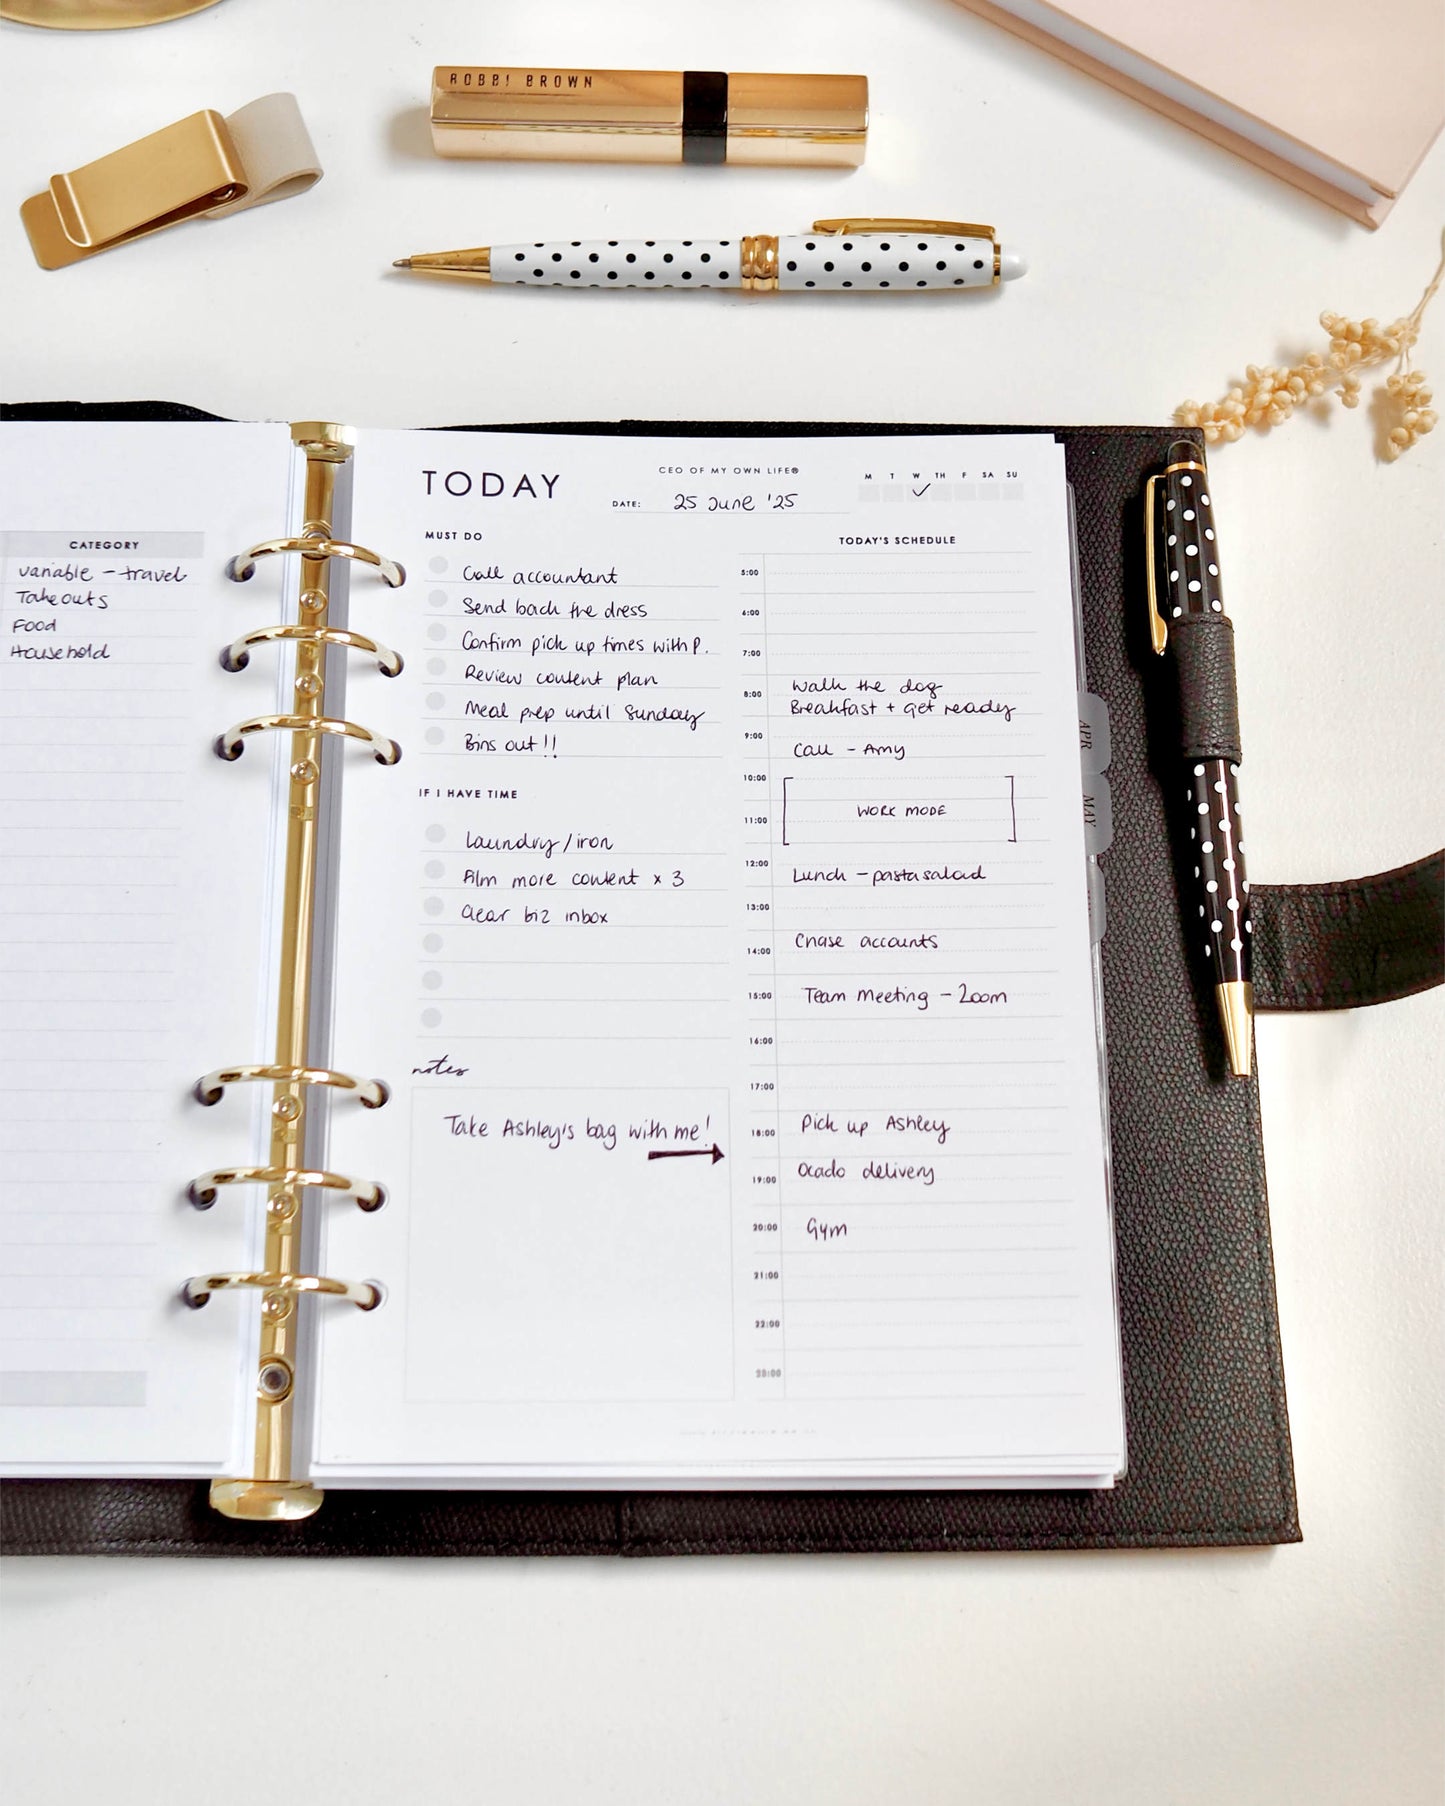 BOBBI BROWN
CATEGORY
variable - travel
Takeouts
Food
Household
TODAY
CEO OF MY OWN LIFE®
DATE: 25 June '25
M T W TH F SA SU
MUST DO
Call accountant
Send back the dress
Confirm pick up times with P.
Review content plan
Meal prep until Sunday
Bins out!!
IF I HAVE TIME
Laundry/iron
Film more content x 3
Clear biz inbox
notes
Take Ashley's bag with me!
TODAY'S SCHEDULE
5:00
6:00
7:00
8:00 Walk the dog
Breakfast + get ready
9:00 Call - Amy
10:00
WORK MODE
11:00
12:00 Lunch - pasta salad
13:00
14:00 Chase accounts
15:00 Team meeting - Zoom
16:00
17:00
18:00 Pick up Ashley
19:00 Ocado delivery
20:00 Gym
21:00
22:00
23:00
APR
MAY